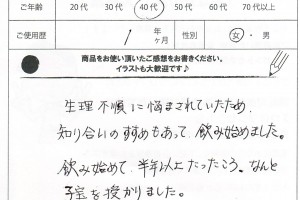 ご年齢 20代 30代 40代 50代 60代 70代以上
ご使用歴 1 年ヶ月 性別 女・男
商品をお使い頂いたご感想をお書きください。
イラストも大歓迎です♪
生理不順に悩まされていたため、
知り合いのすすめもあって、飲み始めました。
飲み始めて、半年以上たったころ、なんと
子宝を授かりました。